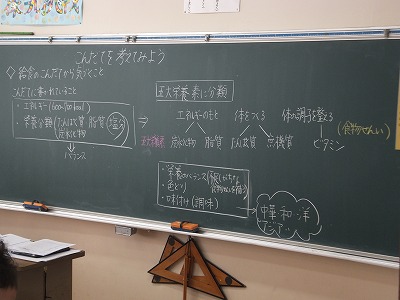 こんだてを考えてみよう
◇給食のこんだてから気づくこと
こんだてに書かれていること
・エネルギー
・栄養分類(たんぱく質 脂質 塩分
炭水化物
バランス
⇒
五大栄養素
五大栄養素に分類
エネルギーのもと 体をつくる 体の調子を整える
炭水化物 脂質 たんぱく質 無機質 ビタミン
(食物せんい)
・栄養のバランス
・色どり
・味付け(調味)
中華 和 洋